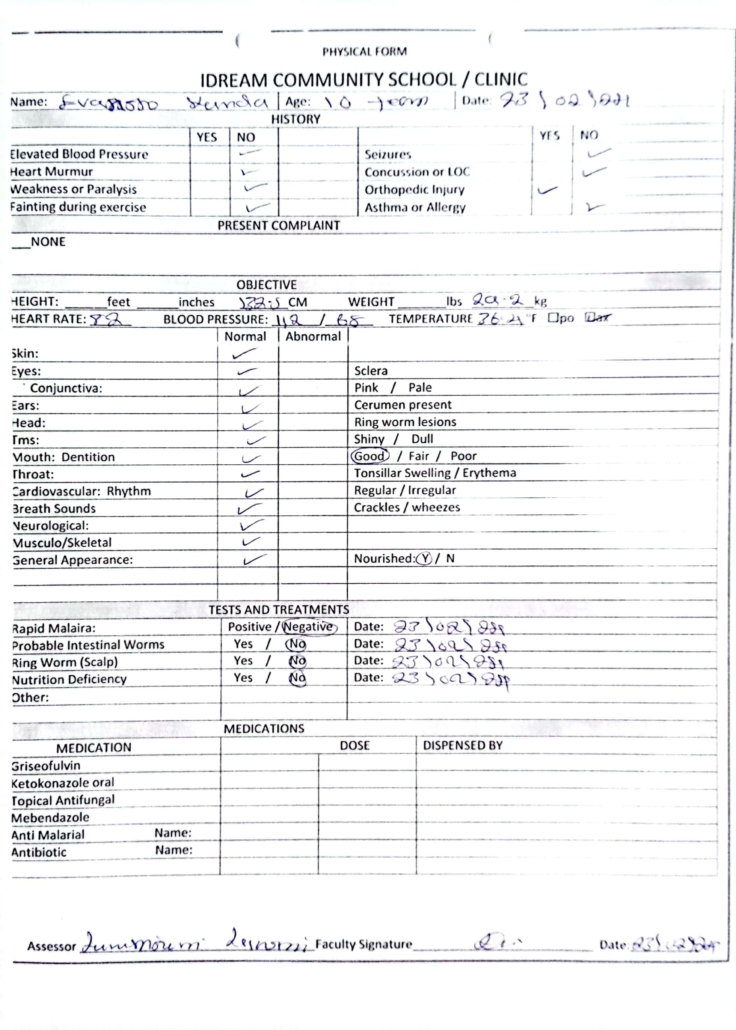 PHYSICAL FORM
IDREAM COMMUNITY SCHOOL / CLINIC
Name: Age: 10 years Date: 23\02\
HISTORY
YES NO YES NO
Elevated Blood Pressure ✓ Seizures ✓
Heart Murmur ✓ Concussion or LOC ✓
Weakness or Paralysis ✓ Orthopedic Injury ✓
Fainting during exercise ✓ Asthma or Allergy ✓
PRESENT COMPLAINT
___NONE
OBJECTIVE
HEIGHT: ______feet ______inches 132.5 CM WEIGHT______lbs 29.2 kg
HEART RATE: 82 BLOOD PRESSURE: 112 / 68 TEMPERATURE 36. °F □po
Normal Abnormal
Skin: ✓
Eyes: ✓ Sclera
Conjunctiva: ✓ Pink / Pale
Ears: ✓ Cerumen present
Head: ✓ Ring worm lesions
Tms: ✓ Shiny / Dull
Mouth: Dentition ✓ Good / Fair / Poor
Throat: ✓ Tonsillar Swelling / Erythema
Cardiovascular: Rhythm ✓ Regular / Irregular
Breath Sounds ✓ Crackles / wheezes
Neurological: ✓
Musculo/Skeletal ✓
General Appearance: ✓ Nourished: Y / N
TESTS AND TREATMENTS
Rapid Malaira: Positive / Negative Date: 23\02\
Probable Intestinal Worms Yes / No Date: 23\02\
Ring Worm (Scalp) Yes / No Date: 23\02\
Nutrition Deficiency Yes / No Date: 23\02\
Other:
MEDICATIONS
MEDICATION DOSE DISPENSED BY
Griseofulvin
Ketokonazole oral
Topical Antifungal
Mebendazole
Anti Malarial Name:
Antibiotic Name:
Assessor Faculty Signature Date: 23\02\